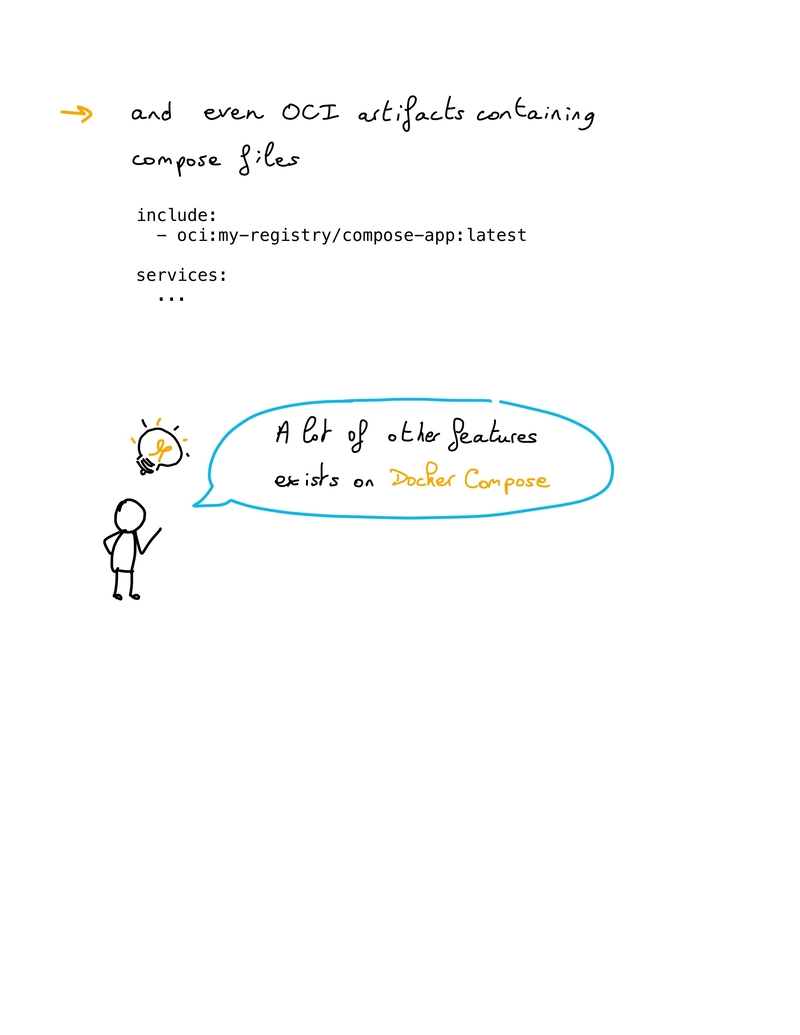 → and even OCI artifacts containing
compose files
include:
  - oci:my-registry/compose-app:latest
services:
  ...
A lot of other features
exists on Docker Compose